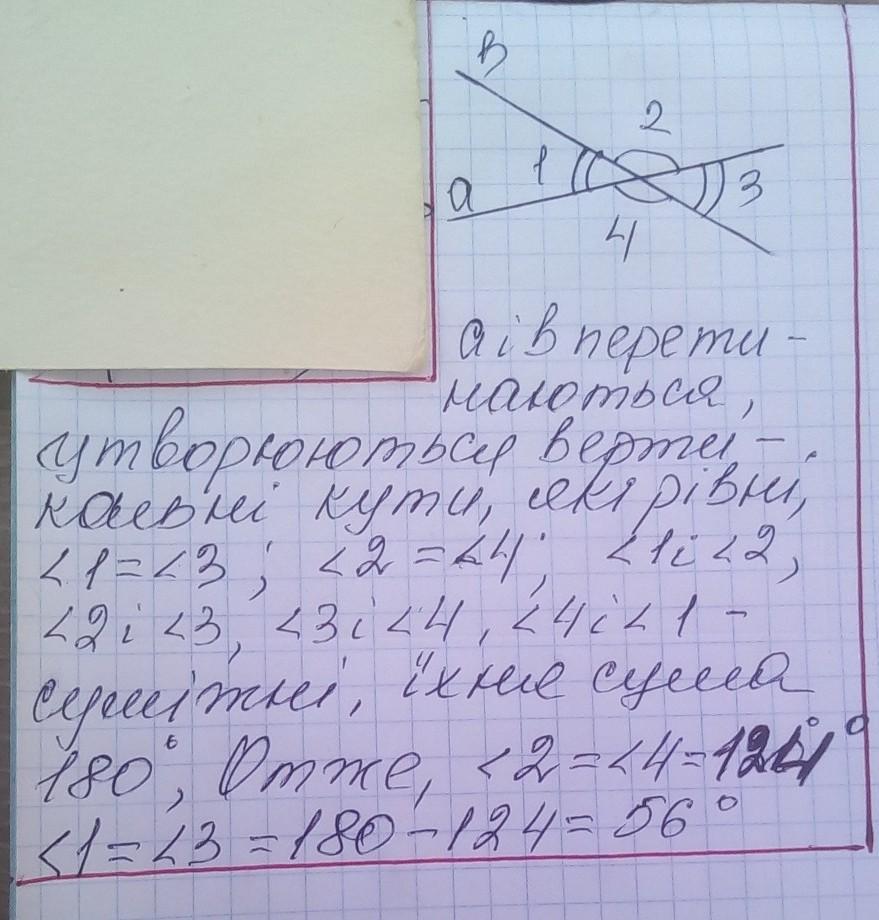 в
2
1
3
а
4
а і в перети-
наються,
утворюються верти-
кальні кути, які рівні,
<1=<3; <2=<4; <1і<2,
<2і <3, <3і<4, <4і<1 -
суміжні, їхня сума
180°, Отже, <2=<4=124°
<1=<3=180-124=56°